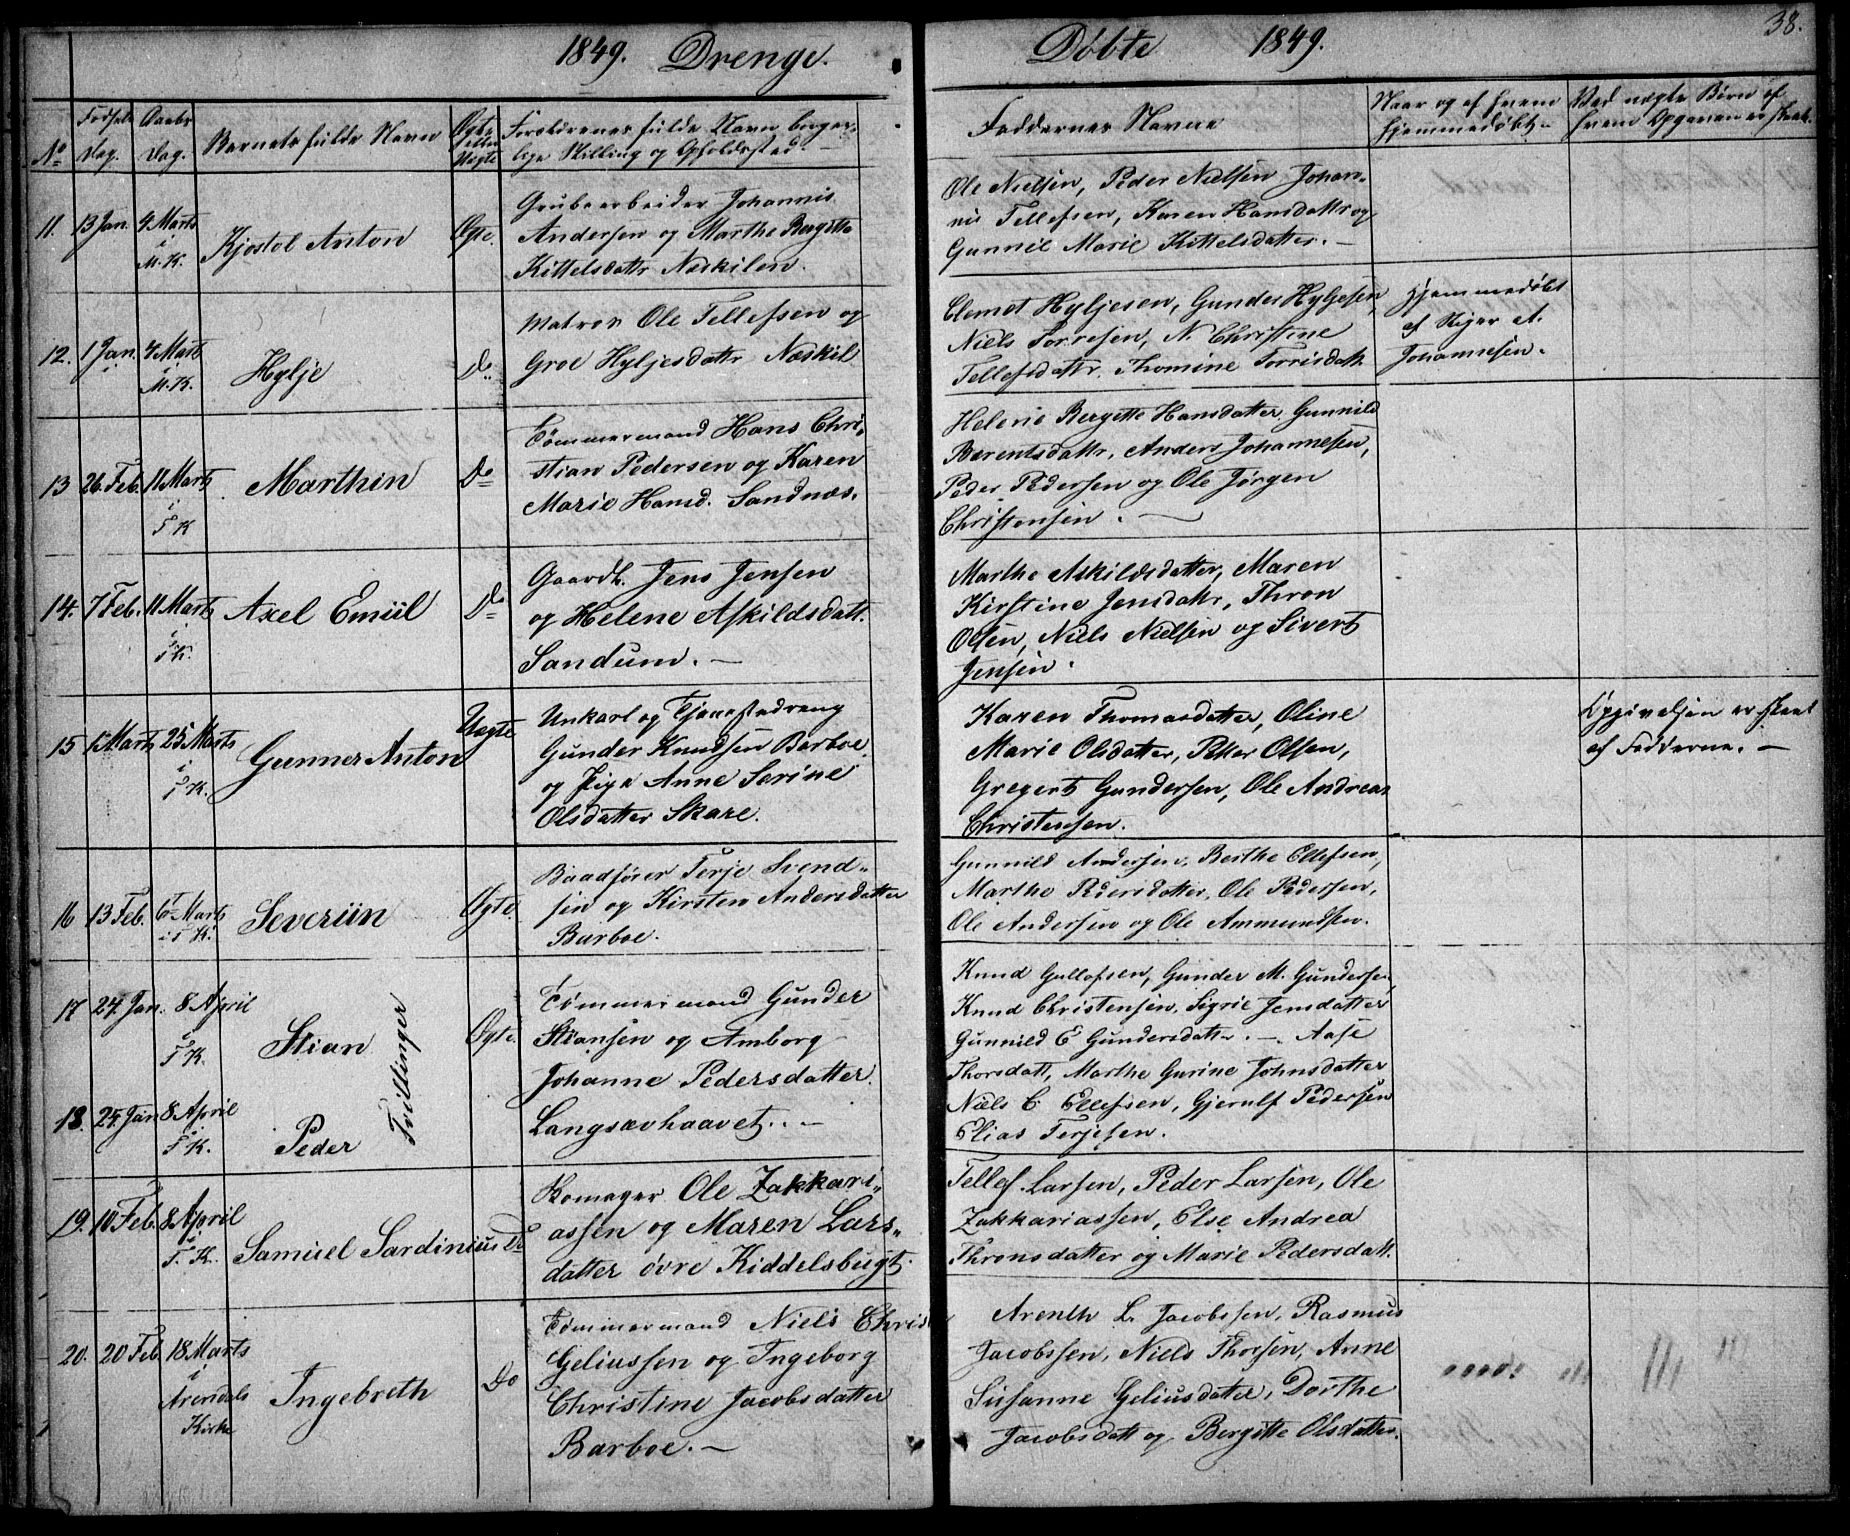 1849. Drenge.
Døbte 1849.
38.
No
Fødsels Dag.
Daabs Dag.
Barnets fulde Navn
Ægte eller Uægte
Forældrenes fulde Navn, borgerlige Stilling og Opholdssted.
Faddernes Navne
Naar og af hvem hjemmedøbt.
Ved uægte Børn af hvem Opgaven er skeet.
11. 13 Jan. 4 Marts i M. K.
Kjøstol Anton
Ægte.
Grubearbeider Johannis
Andersen og Marthe Bergitte
Kittelsdattr Næskilen.
Ole Nielsen, Peder Nielsen Johan„
nis Tellefsen, Karen Hansdattr og
Gunnil Marie Kittelsdatter. —
12. 1 Jan. 4 Marts i M. K.
Hylje
Do
Matros Ole Tellefsen og
Groe Hyljesdattr Næskil
Clemet Hyljesen, Gunder Hyljesen,
Niels Torresen, N. Christine
Tellefsdattr. Thomine Torrisdatt.
Hjemmedøbt
af Reier A.
Johannesen.
13 26 Feb. 11 Marts i T K
Marthin
Do
Tømmermand Hans Chri„
stian Pedersen og Karen
Marie Hansd. Sandnæs.
Helene Bergitte Hansdatter, Gunnild
Bærentsdattr, Anders Johannesen,
Peder Pedersen og Ole Jørgen
Christensen. —
14. 7 Feb. 11 Marts i T K.
Axel Emiil
Do
Gaardb. Jens Jensen
og Helene Askildsdatt.
Sandum. —
Marthe Askildsdatter, Maren
Kirstine Jensdattr, Thron
Olsen, Niels Nielsen og Sivert
Jensen.
15 1 Marts 25 Marts i T K.
Gunner Anton
Uægte
Unkarl og Tjenestedreng
Gunder Knudsen Barboe
og Pige Anne Serine
Olsdatter Skare.
Karen Thomasdatter, Oline
Marie Olsdatter, Petter Olsen,
Gregert Gundersen, Ole Andreas
Christensen.
Opgivelsen er skeet
af Fadderne. —
16 13 Feb. Marts i T K.
Severiin
Ægte.
Baadfører Terje Svend„
sen og Kirsten Andersdatter
Barboe.
Gunnild Andersen, Berthe Ellefsen,
Marthe Pedersdatter, Ole Pedersen,
Ole Andersen og Ole Ammundsen.
17 24 Jan. 8 April i T K.
Stian
Tvillinger
Ægte.
Tømmermand Gunder
Stiansen og Amborg
Johanne Pedersdatter.
Langsævhaavet. —
Knud Gullofsen, Gunder M. Gundersen,
Knud Christensen, Sigrie Jensdatter
Gunnild E Gundersdattr. —. Aase
Thorsdatt, Marthe Gurine Johnsdatter
Niels C. Ellefsen, Gjerulf Pedersen
Elias Terjesen.
18. 24 Jan 8 April i T K.
Peder
19. 10 Feb. 8 April i T. K.
Samuel Sardinius
Do
Ole Zakkari„
assen og Maren Lars„
datter övre Kiddelsbugt.
Tellef Larsen, Peder Larsen, Ole
Zakkariassen, Else Andrea
Thronsdatter og Marie Pedersdatt.
20. 20 Feb. 18 Marts i Arendals Kirke
Ingebreth
Do
Tømmermand Niels Chris
Geliussen og Ingeborg
Christine Jacobsdatter
Barboe. —
Arenth L. Jacobssen, Rasmus
Jacobssen, Niels Thorsen, Anne
Susanne Geliusdatter, Dorthe
Jacobsdatt og Bergitte Olsdatter.